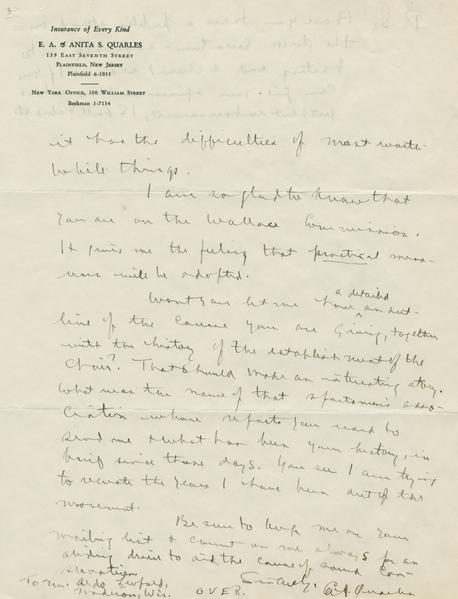 3
Insurance of Every Kind
E. A. & ANITA S. QUARLES
139 EAST SEVENTH STREET
PLAINFIELD, NEW JERSEY
Plainfield 6-1035
NEW YORK OFFICE, 100 WILLIAM STREET
Beekman 3-7134
it has the difficulties of most worth-
while things.
I am so glad to know that
you are on the Wallace Commission.
It gives me the feeling that practical meas-
ures will be adopted.
a detailed
Wont you let me have an out-
line of the course you are giving, together
with the history of the establishment of the
chair? That should make an interesting story.
What was the name of that sportsmen's asso-
ciation whose reports you used to
send me & what has been your history, in
brief since those days. You see I am trying
to the years I have been out of the
movement.
Be sure to keep me on your
mailing list & count on me always for an
abiding desire to aid the cause of sound con-
servation.
Sincerely, E.A. Quarles
To Mr. Aldo Leopold,
Madison, Wis.
OVER.